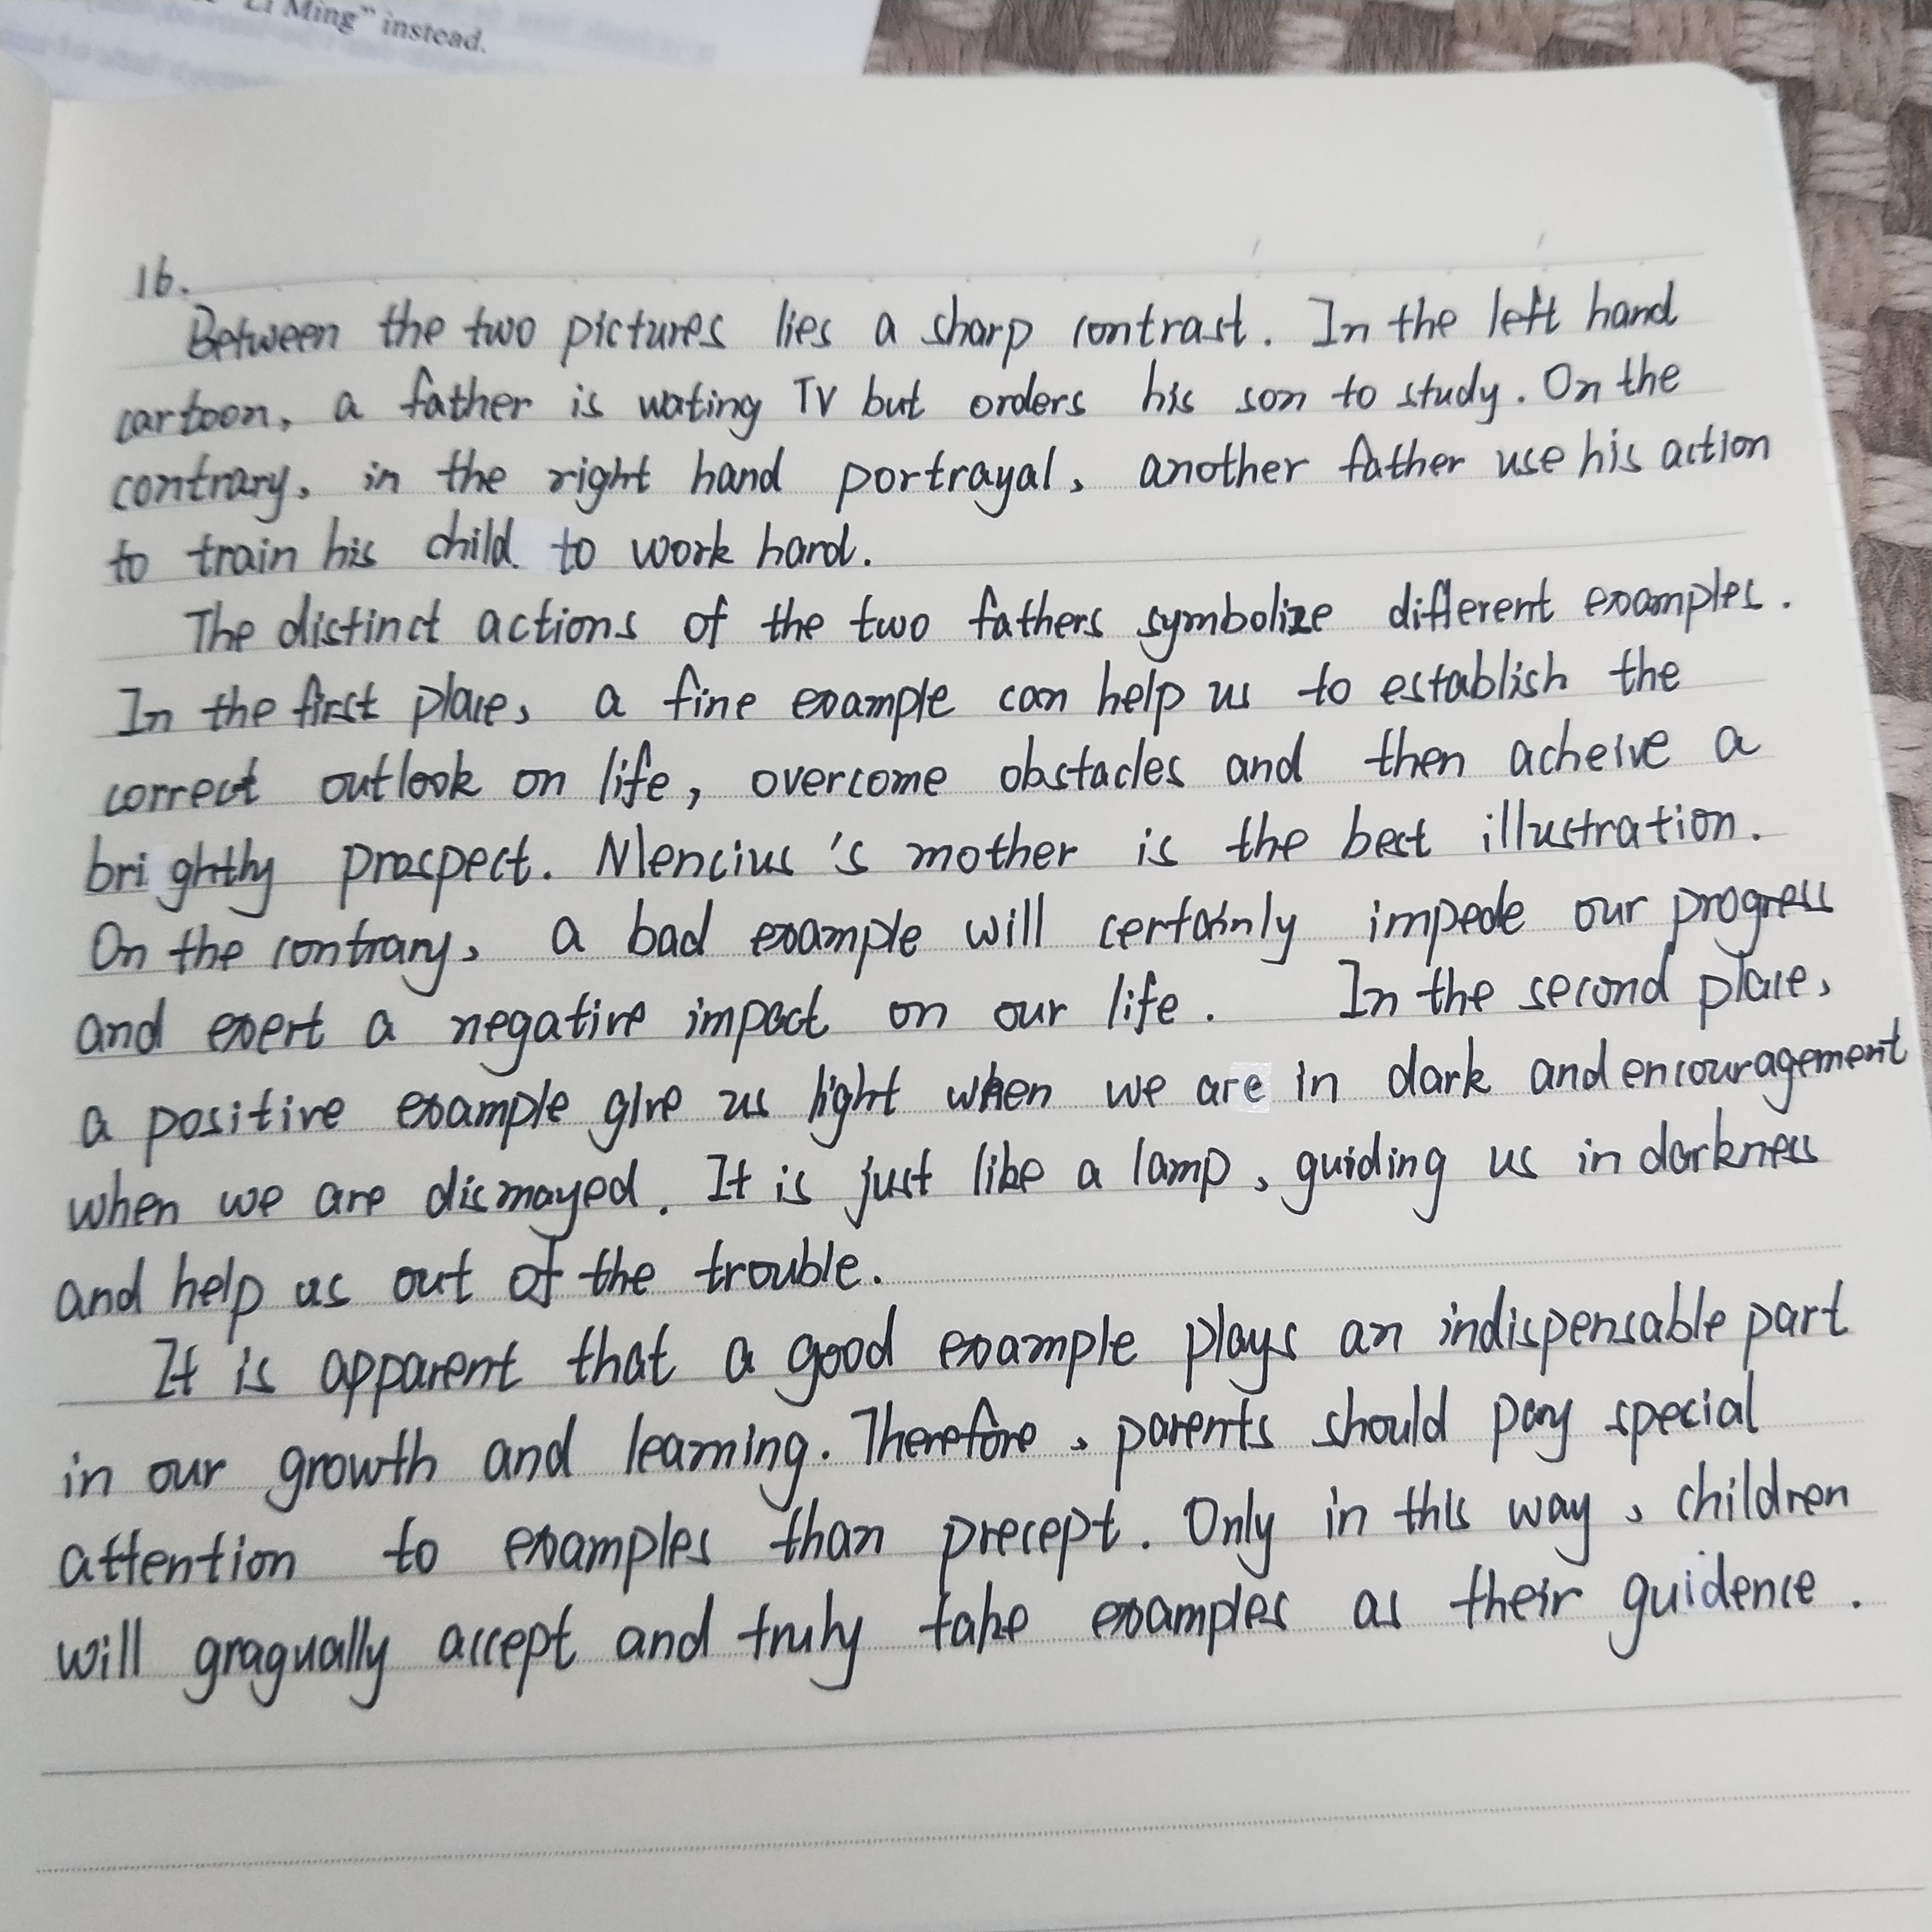 "Li Ming" instead.
16.
Between the two pictures lies a sharp contrast. In the left hand
cartoon, a father is wating TV but orders his son to study. On the
contrary, in the right hand portrayal, another father use his action
to train his child to work hard.
The distinct actions of the two fathers symbolize different examples.
In the first place, a fine example can help us to establish the
correct outlook on life, overcome obstacles and then acheive a
brightly prospect. Mencius's mother is the best illustration.
On the contrary, a bad example will certainly impede our progress
and exert a negative impact on our life. In the second place,
a positive example give us light when we are in dark and encouragement
when we are dismayed. It is just like a lamp, guiding us in darkness
and help us out of the trouble.
It is apparent that a good example plays an indispensable part
in our growth and learning. Therefore, parents should pay special
attention to examples than precept. Only in this way, children
will gragually accept and truly take examples as their guidence.